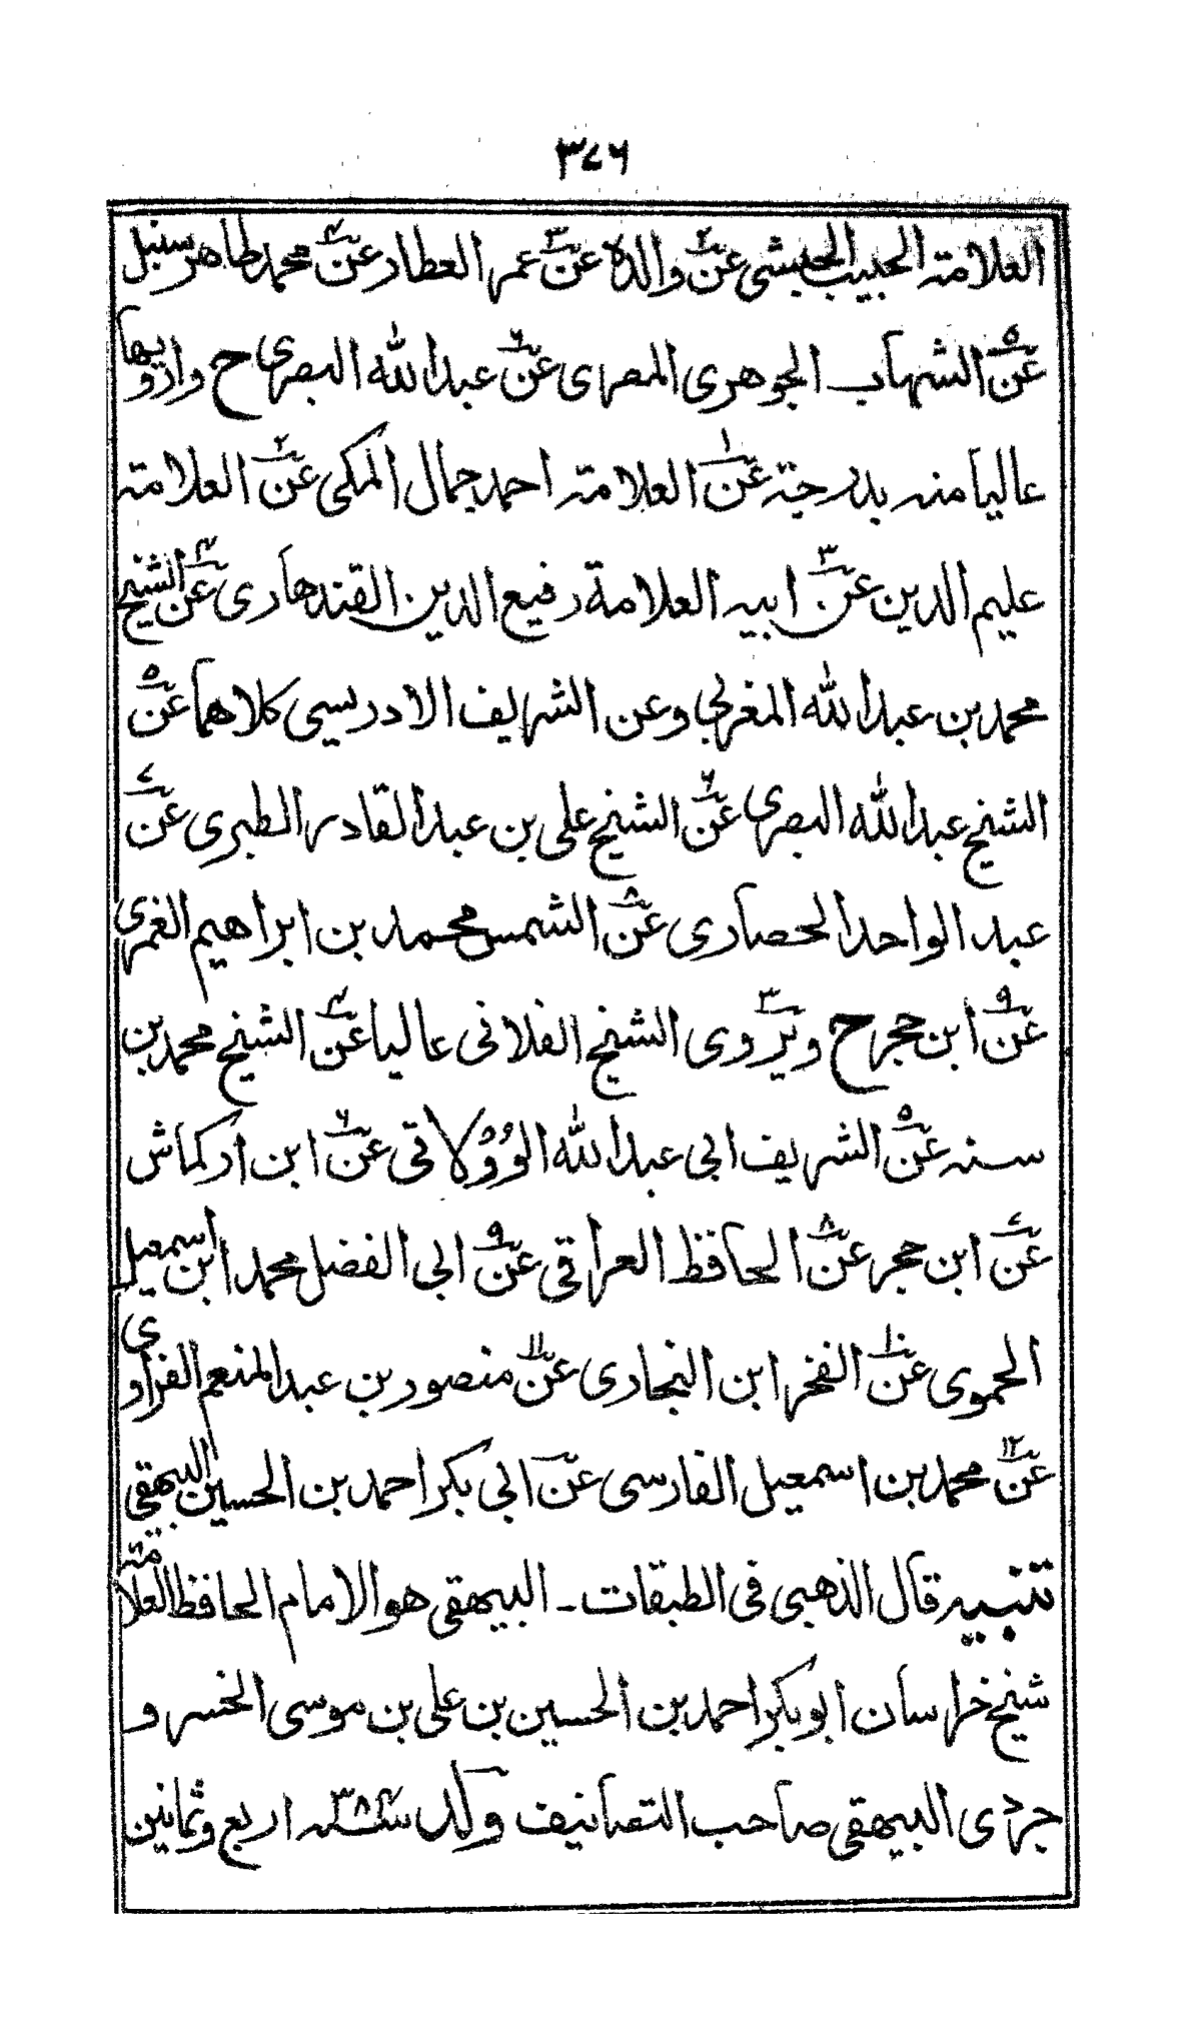 ٣٧٦
العلامة الحبيب الحبشى عن٢ والده عن٣ عمر العطار عن٤ محمد طاهر سنبل
عن٥ الشهاب الجوهرى المصرى عن٦ عبد الله البصرى ح وارويها
عاليا منه بدرجة عن١ العلامة احمد جمال المكى عن٢ العلامة
عليم الدين عن٣ ابيه العلامة رفيع الدين القندهارى عن٤ الشيخ
محمد بن عبد الله المغربى وعن الشريف الادريسى كلاهما عن٥
الشيخ عبد الله البصرى عن٦ الشيخ على بن عبد القادر الطبرى عن٧
عبد الواحد الحصارى عن٨ الشمس محمد بن ابراهيم الغمرى
عن٩ ابن حجر ح ويروى٣ الشيخ الفلانى عاليا عن٤ الشيخ محمد بن
سنه عن٥ الشريف ابى عبد الله الوُوُلاتى عن٦ ابن اركماش
عن٧ ابن حجر عن٨ الحافظ العراقى عن٩ ابى الفضل محمد ابن اسمعيل
الحموى عن١٠ الفخر ابن النجارى عن١١ منصور بن عبد المنعم الفراوى
عن١٢ محمد بن اسمعيل الفارسى عن ابى بكر احمد بن الحسين البيهقى
تنبيه قال الذهبى فى الطبقات ـ البيهقى هو الامام الحافظ العلامة
شيخ خراسان ابو بكر احمد بن الحسين بن على بن موسى الخسرو
جردى البيهقى صاحب التصانيف ولد سنة٣٨٤ه اربع وثمانين